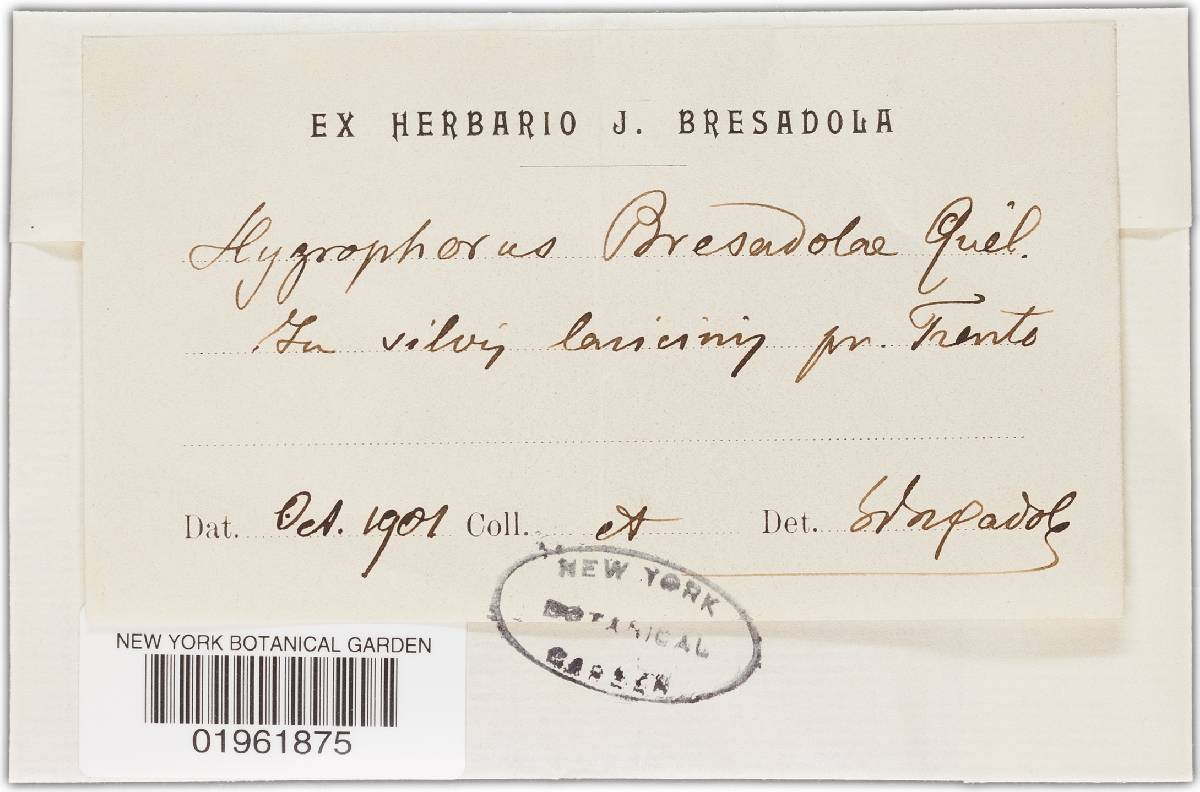 EX HERBARIO J. BRESADOLA
Hygrophorus Bresadolae Quél.
In silvis laricinis pr. Trento
Dat. Oct. 1901 Coll. et Det. Bresadola
NEW YORK
BOTANICAL
GARDEN
NEW YORK BOTANICAL GARDEN
01961875